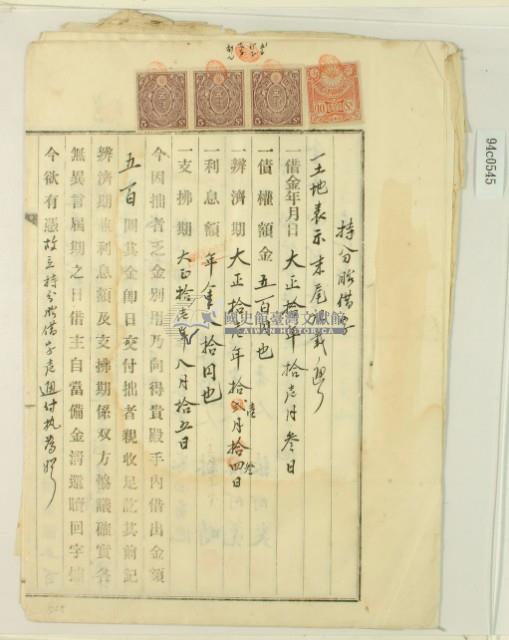 持分胎借字
一土地表示末尾
一借金年月日大正拾年拾壱月叁日
一債權額金五百圓也
一辨濟期大正拾年拾月拾四日
一利息額年金八拾円也
一支拂期大正拾年八月拾五日
今因拙者乏金別用乃向得貴殿手內借出金額
五百圓其金卽日交付拙者親收足訖其前記
辨濟期並利息額及支拂期係双方協議確實各
無異言屆期之日借主自當備金淸還贖回字據
今欲有憑故立持分胎借字壱通付执為炤
國史館臺灣文獻館
TAIWAN HISTORICA
94c0545